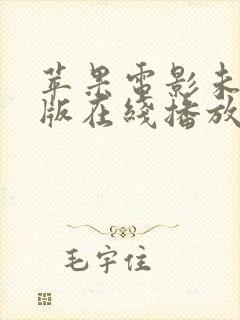 苹果電影未
版在綫播放
毛宇住